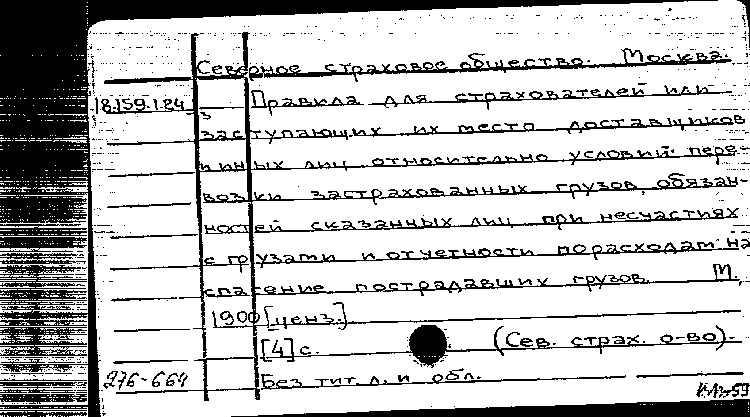 Северное страховое общество. Москва.
18.159.1.84 Правила для страхователей или
заступающих их место доставщиков
и иных лиц относительно условий пере-
возки застрахованных грузов, обязан-
ностей сказанных лиц при несчастиях
с грузами и отчетности по расходам на
спасение пострадавших грузов. М.,
1900 [ценз.]
[4] с. (Сев. страх. о-во).-
Без тит. л. и обл.
276-664